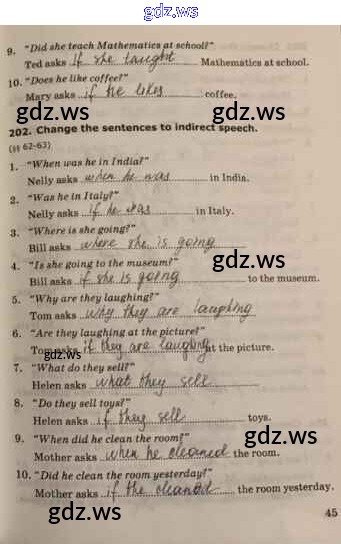 gdz.ws
9. "Did she teach Mathematics at school?"
Ted asks if she taught Mathematics at school.
10. "Does he like coffee?"
Mary asks if he likes coffee.
gdz.ws gdz.ws
202. Change the sentences to indirect speech.
(§§ 62-63)
1. "When was he in India?"
Nelly asks when he was in India.
gdz.ws gdz.ws
2. "Was he in Italy?"
Nelly asks if he was in Italy.
3. "Where is she going?"
Bill asks where she is going
gdz.ws
4. "Is she going to the museum?"
Bill asks if she is going to the museum.
5. "Why are they laughing?"
Tom asks why they are laughing
6. "Are they laughing at the picture?"
Tom asks if they are laughing at the picture.
gdz.ws
7. "What do they sell?"
Helen asks what they sell
8. "Do they sell toys?"
Helen asks if they sell toys.
9. "When did he clean the room?"
gdz.ws
Mother asks when he cleaned the room.
10. "Did he clean the room yesterday?"
Mother asks if the cleaned the room yesterday.
45
gdz.ws gdz.ws
gdz.ws